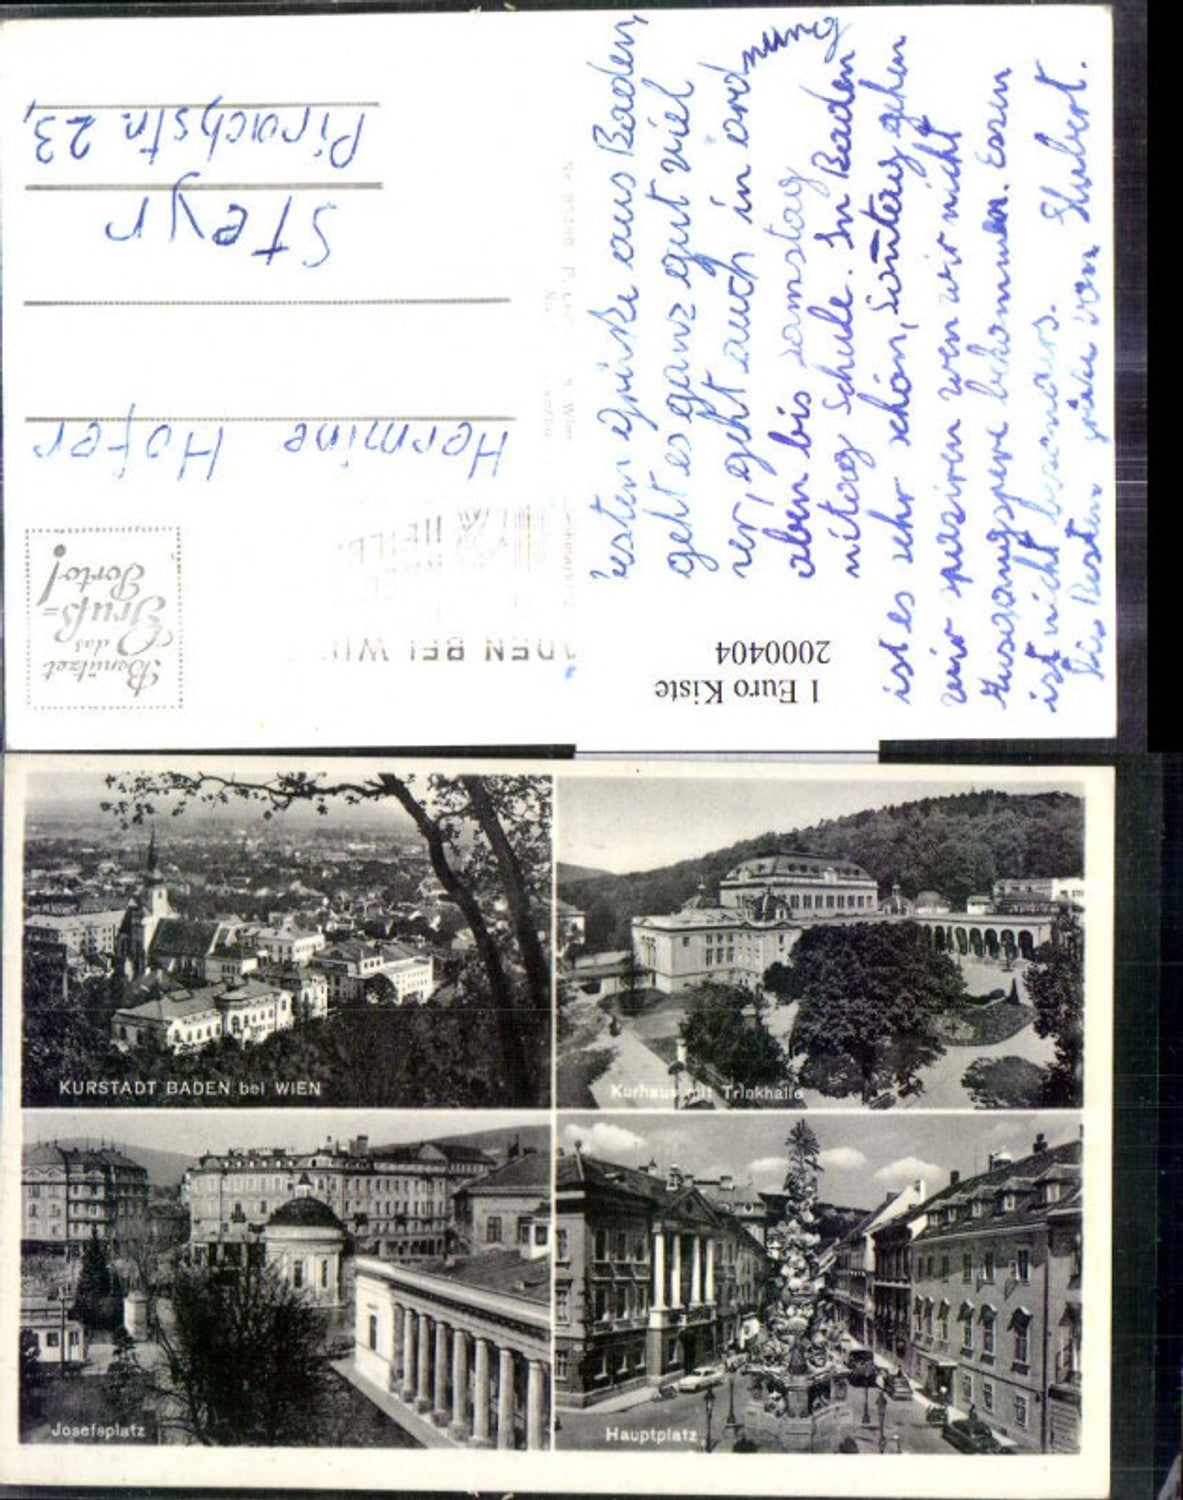 esten Grüße aus Baden,
geht es ganz gut viel
ver, geht auch in ordnung
aben bis samstag
mitag Schule. In Baden
ist es sehr schön, Sontag gehen
wir spaziren wen wir nicht
Ausgangspere bekommen. Essen
ist nicht besonders.
Die Besten grüße von Hubert.
Hermine Hofer
Steyr
Pirachstr. 23,
Benützet
das
Gruß=
Porto!
ADEN BEI WI
1 Euro Kiste
2000404
KURSTADT BADEN bei WIEN
Kurhaus mit Trinkhalle
Josefsplatz
Hauptplatz